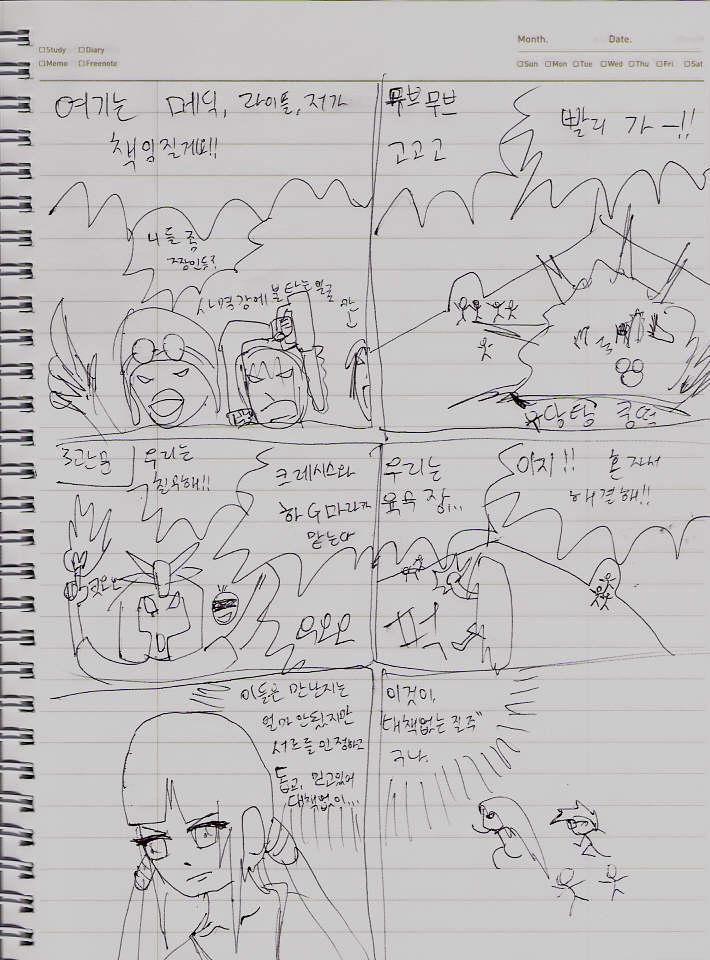 □Study □Diary
□Memo □Freenote
Month. Date.
□Sun □Mon □Tue □Wed □Thu □Fri □Sat
여기는 메딕, 라이플, 저가
책임질게요!!
니들 좀
무브무브
고고고
빨리 가-!!
우당탕 쿵떡
3관문
우리는
친숙해!!
크레시스와
하G마라가
맡는다
우오오
우리는
육득 장...
이지!! 혼자서
해결해!!
퍽
이들은 만난지는
얼마 안됬지만
서로를 인정하고
돕고, 믿고있어
대책없이...
이것이,
"대책없는 질주"
구나.